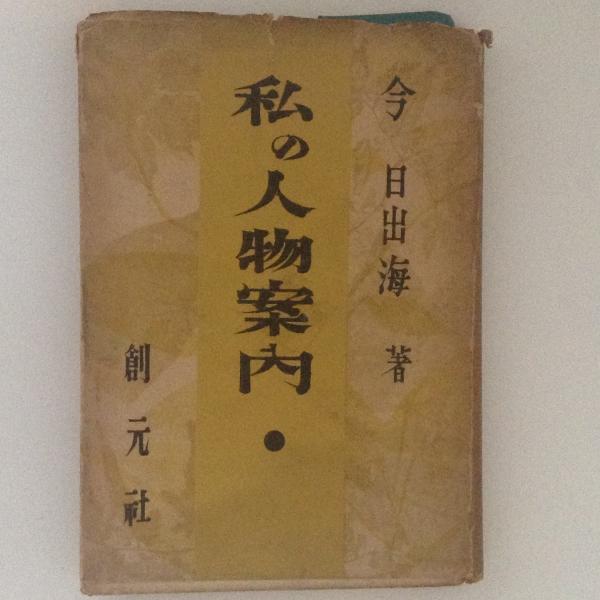 今 日出海 著
私の人物案内・
創元社